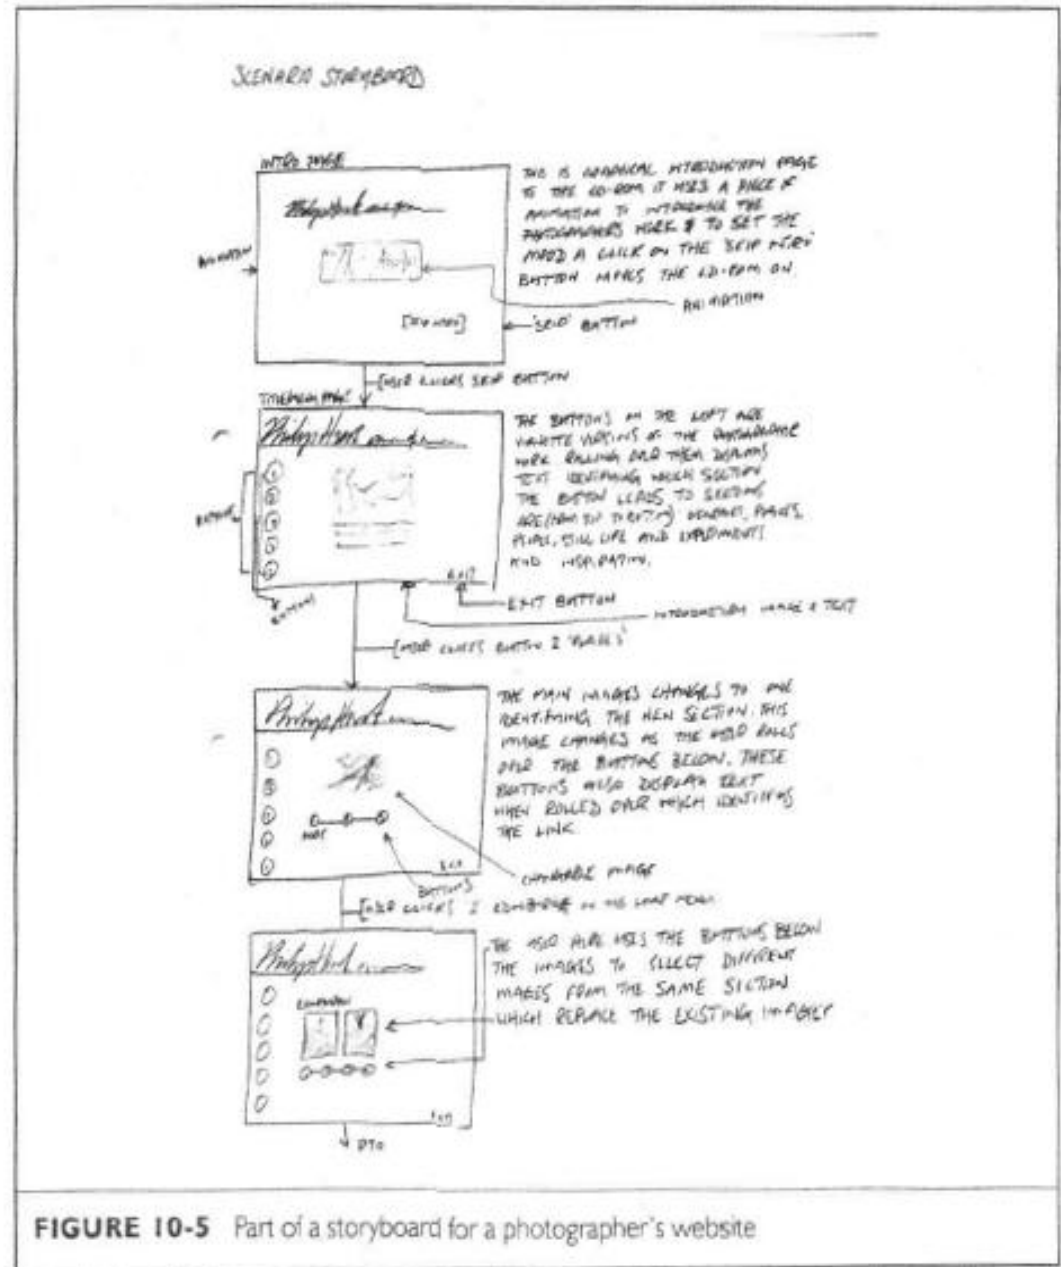 SCENARIO STORYBOARD
INTRO PAGE
THIS IS INTRODUCTION PAGE
TO THE CD-ROM IT USES A PIECE OF
ANIMATION TO INTRODUCE THE
PHOTOGRAPHERS WORK & TO SET THE
MOOD A CLICK ON THE 'SKIP INTRO'
BUTTON MOVES THE CD-ROM ON.
ANIMATION
ANIMATION
[SKIP INTRO]
'SKIP' BUTTON
[USER CLICKS SKIP BUTTON
PAGE
THE BUTTONS ON THE LEFT ARE
VERSIONS OF THE PHOTOGRAPHIC
WORK ROLLING OVER THEM DISPLAYS
TEXT IDENTIFYING WHICH SECTION
THE BUTTON LEADS TO SECTIONS
ARE PLACES,
PEOPLE, STILL LIFE AND EXPERIMENTS
AND INSPIRATION.
BUTTONS
EXIT
BUTTONS
EXIT BUTTON
INTRODUCTION IMAGE & TEXT
[USER CLICKS BUTTON 2 'PLACES'
THE MAIN IMAGES CHANGES TO ONE
IDENTIFYING THE NEW SECTION. THIS
IMAGE CHANGES AS THE USER ROLLS
OVER THE BUTTONS BELOW. THESE
BUTTONS ALSO DISPLAY TEXT
WHEN ROLLED OVER WHICH IDENTIFIES
THE LINK
EXIT
CHANGABLE IMAGE
BUTTONS
[USER CLICKS
THE USER HERE USES THE BUTTONS BELOW
THE IMAGES TO SELECT DIFFERENT
IMAGES FROM THE SAME SECTION
WHICH REPLACE THE EXISTING IMAGES
EXIT
PTO
FIGURE 10-5 Part of a storyboard for a photographer's website